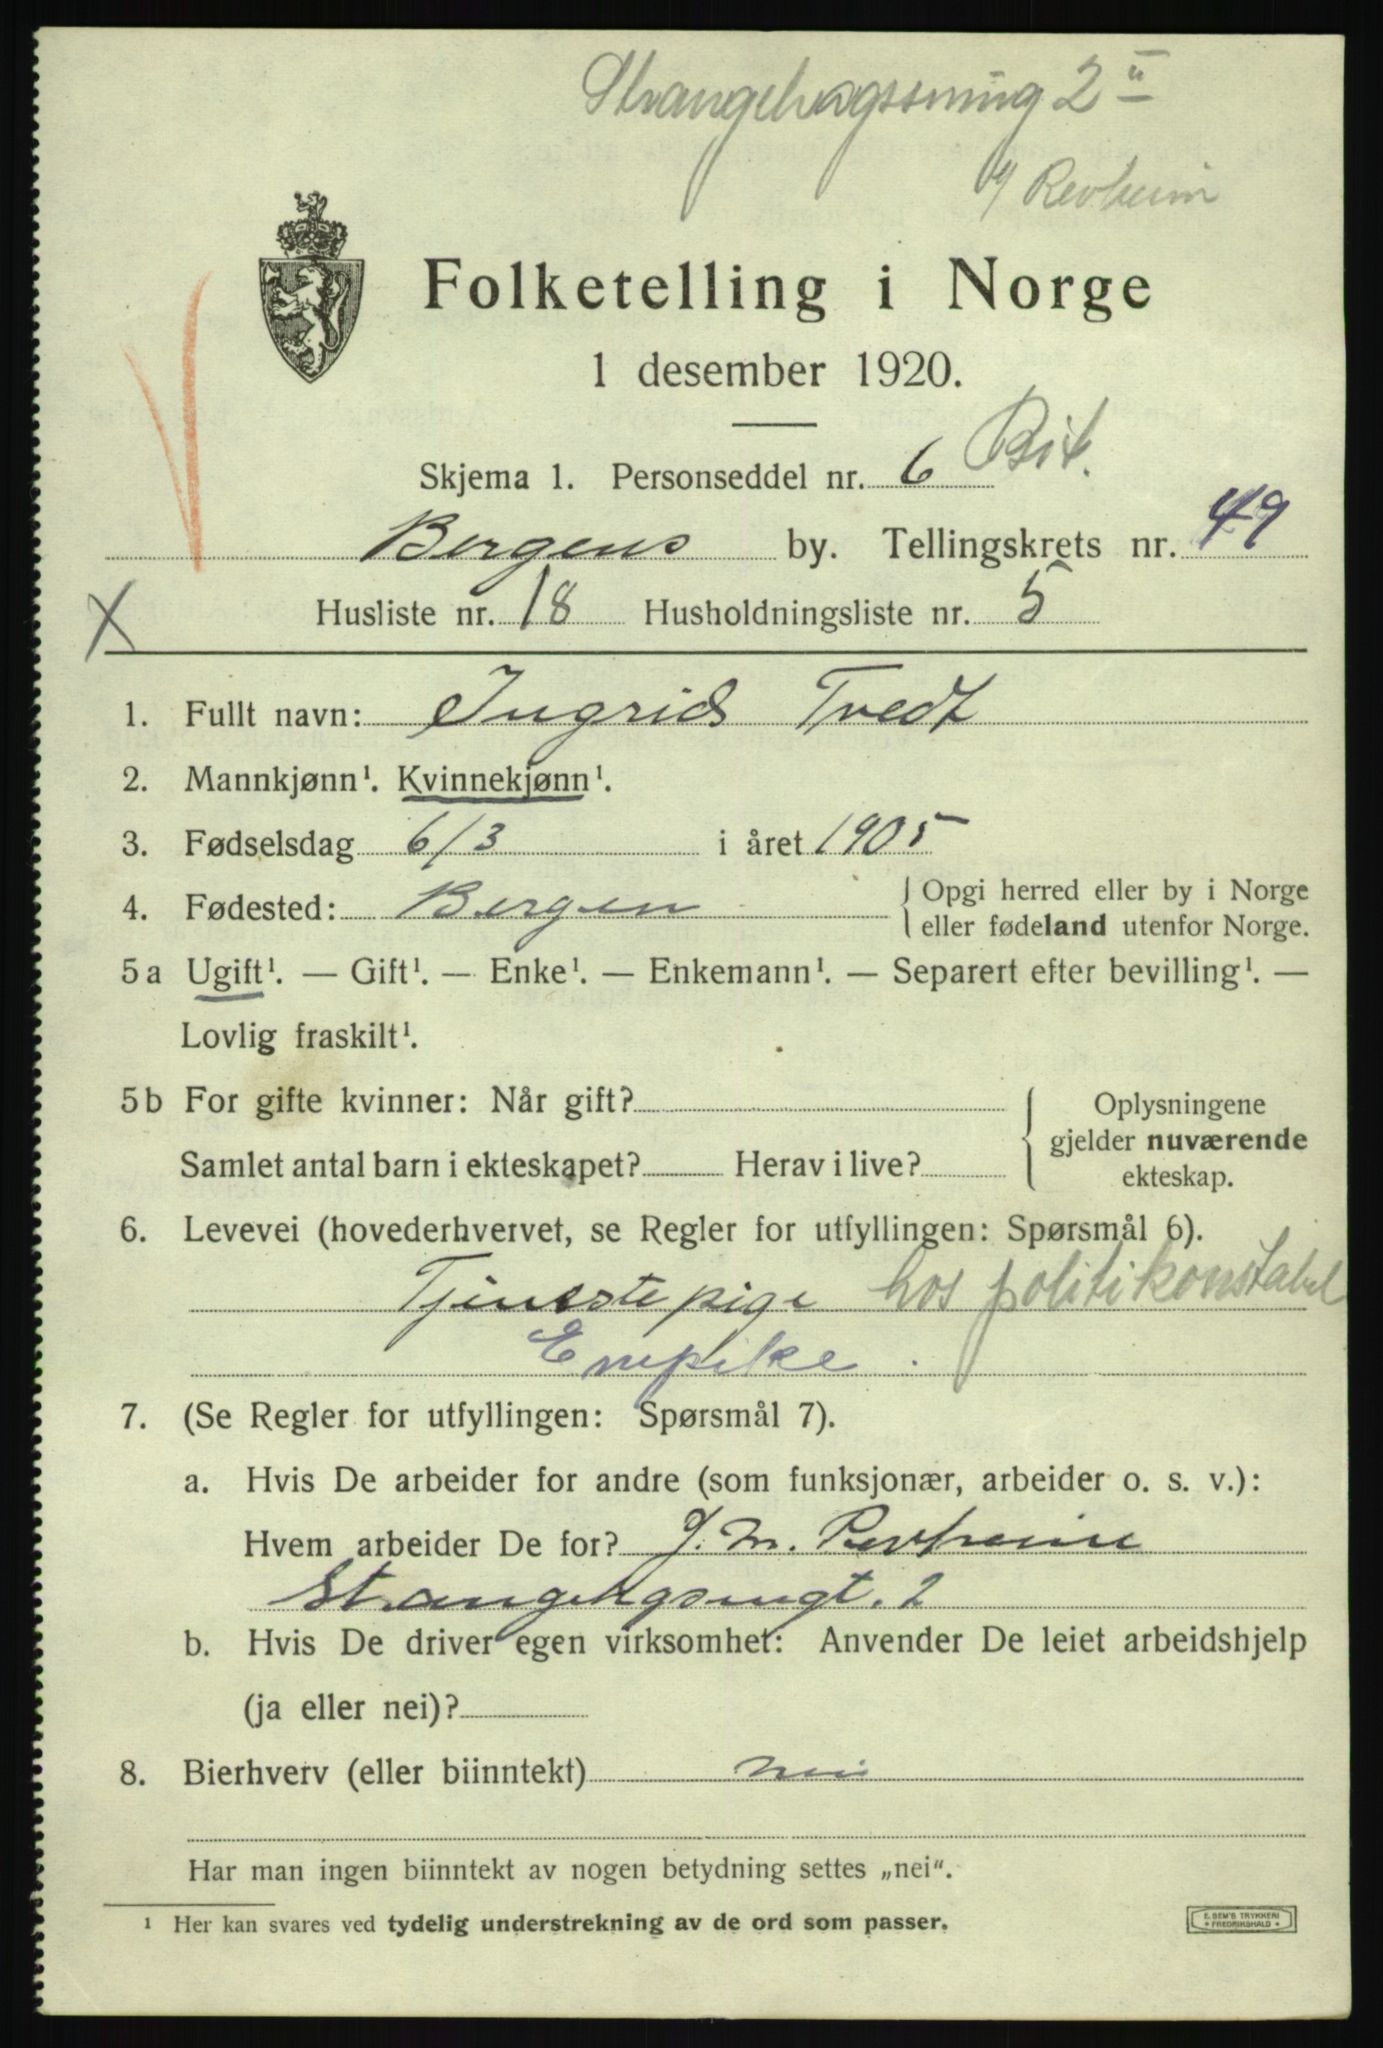 Strangehagssmug 2 II
c/ Revheim
Folketelling i Norge
1 desember 1920.
Skjema 1. Personseddel nr. 6 Bit.
Bergens by. Tellingskrets nr. 49
X Husliste nr. 18 Husholdningsliste nr. 5
1. Fullt navn: Ingrid Tvedt
2. Mannkjønn¹. Kvinnekjønn¹.
3. Fødselsdag 6/3 i året 1905
4. Fødested: Bergen { Opgi herred eller by i Norge
eller fødeland utenfor Norge.
5 a Ugift¹. — Gift¹. — Enke¹. — Enkemann¹. — Separert efter bevilling¹. —
Lovlig fraskilt¹.
5 b For gifte kvinner: Når gift? { Oplysningene
gjelder nuværende
ekteskap.
Samlet antal barn i ekteskapet? Herav i live?
6. Levevei (hovederhvervet, se Regler for utfyllingen: Spørsmål 6).
Tjenestepige hos politikonstabel
Enepike.
7. (Se Regler for utfyllingen: Spørsmål 7).
a. Hvis De arbeider for andre (som funksjonær, arbeider o. s. v.):
Hvem arbeider De for? J. M. Revheim
Strangehgsmugt. 2
b. Hvis De driver egen virksomhet: Anvender De leiet arbeidshjelp
(ja eller nei)?
8. Bierhverv (eller biinntekt) nei
Har man ingen biinntekt av nogen betydning settes „nei“.
¹ Her kan svares ved tydelig understrekning av de ord som passer.
E. SEM'S TRYKKERI
• FREDRIKSHALD •